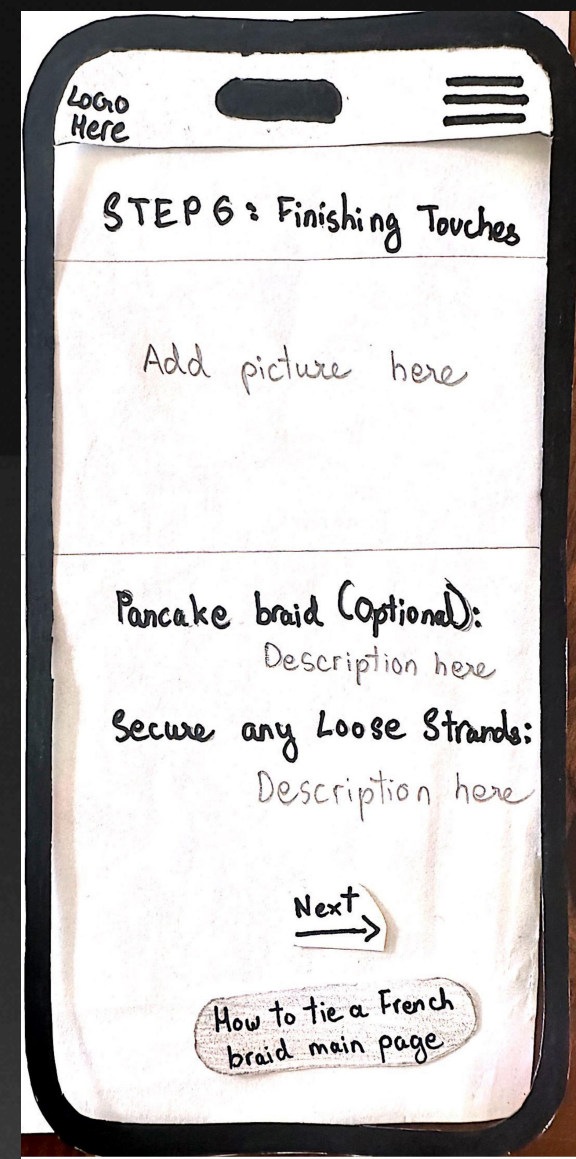 LOGO
Here
STEP 6: Finishing Touches
Add picture here
Pancake braid (Optional):
Description here
Secure any Loose Strands:
Description here
Next
How to tie a French
braid main page